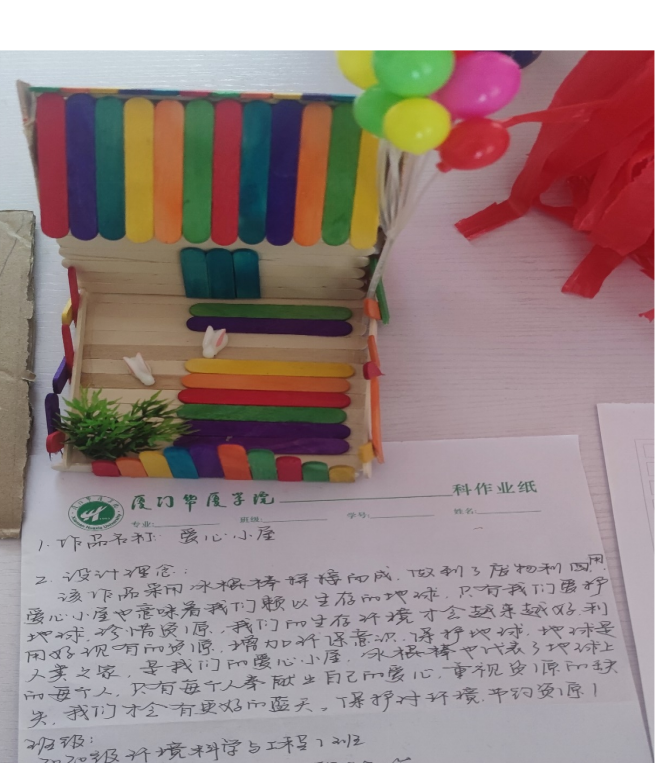 厦门华厦学院 科作业纸
专业: 班级: 学号: 姓名:
1.作品名称: 爱心小屋
2.设计理念:
该作品采用冰棍棒拼接而成,做到了废物利用,
爱心小屋也意味着我们赖以生存的地球,只有我们爱护
地球,珍惜资源,我们的生存环境才会越来越好,利
用好现有的资源,增加环保意识,保护地球,地球是
人类之家,是我们的爱心小屋,冰棍棒也代表了地球上
的每个人,只有每个人奉献出自己的爱心,重视资源的缺
失,我们才会有更好的蓝天。保护环境,节约资源!
班级:
2020级环境科学与工程1班